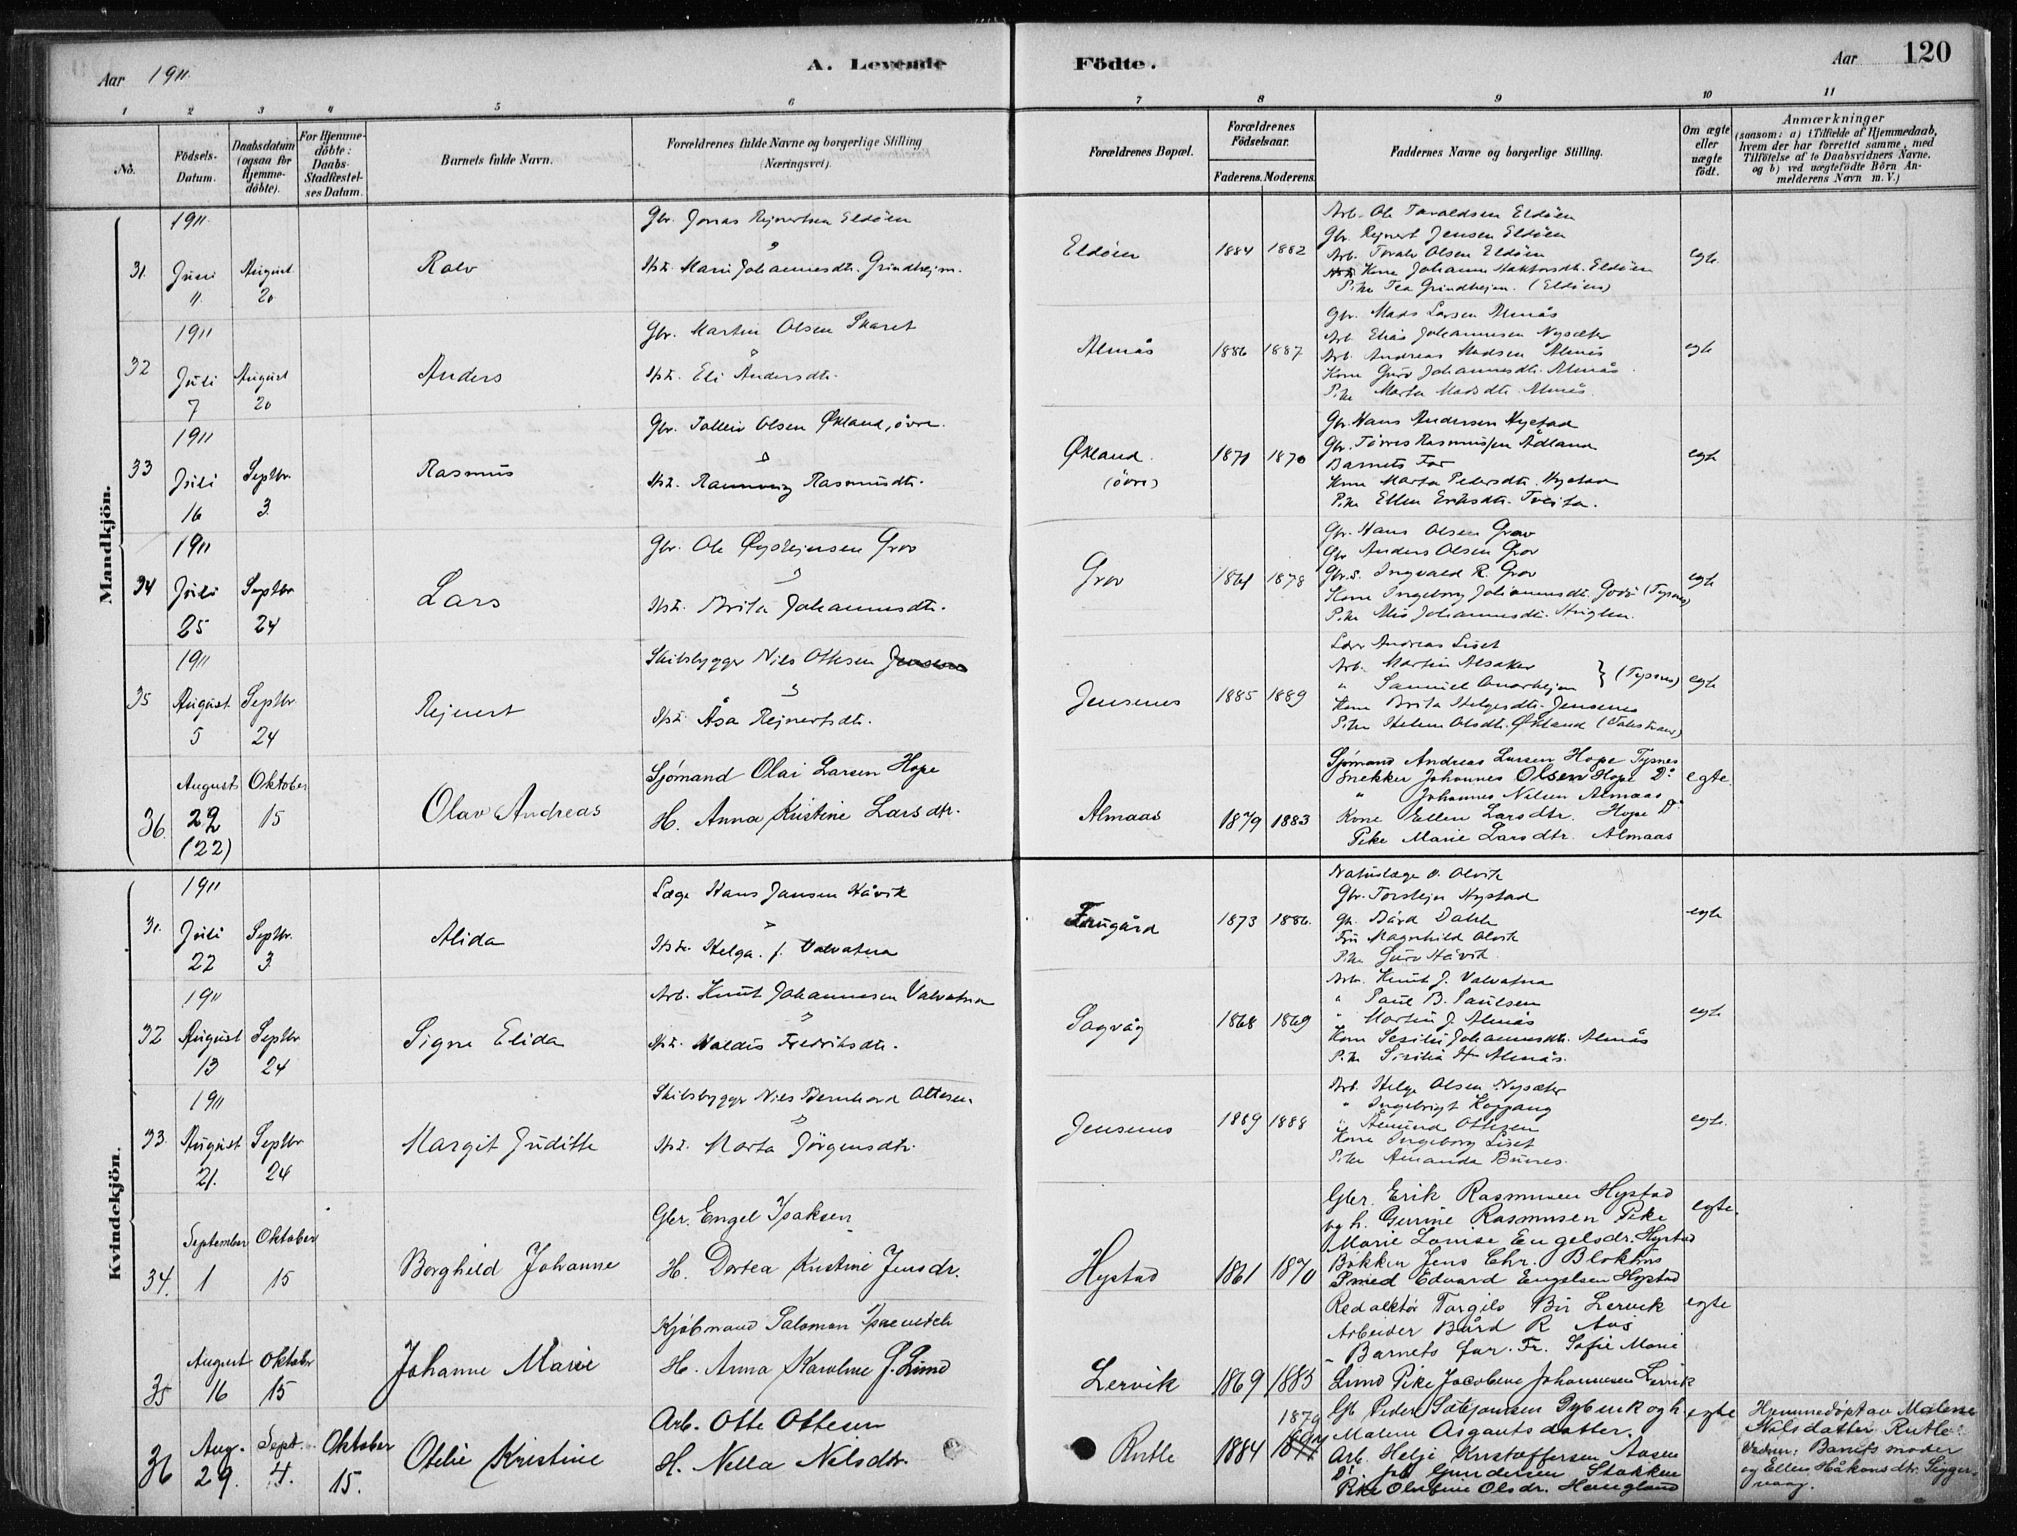 Aar 1911.
A. Levende Födte.
Aar 120
1 2 3 4 5 6 7 8 9 10 11
No.
Födsels-Datum.
Daabsdatum (ogsaa for Hjemmedöbte).
For Hjemmedöbte: Daabs-Stadfæstelses Datum.
Barnets fulde Navn.
Forældrenes fulde Navne og borgerlige Stilling (Næringsvei).
Forældrenes Bopæl.
Forældrenes Födselsaar.
Faderens. Moderens.
Faddernes Navne og borgerlige Stilling.
Om ægte eller uægte födt.
Anmærkninger
(saasom: a) i Tilfælde af Hjemmedaab, hvem der har forrettet samme, med Tilföielse af to Daabsvidners Navne. og b) ved uægtefödte Börn Anmelderens Navn m. V.)
Mandkjön.
1911
31. Juni 11. August 20
Ralv
Gbr. Jonas Rejnertsen Eldöen
Hst. Marie Johannesdtr. Grindhejm.
Eldöen 1884 1882
Arb. Ole Taraldsen Eldöen
Gbr. Rejnert Jensen Eldöen
Arb. Torald Olsen Eldöen
Kone Johanne Eldöen
Pike Tea Grindhejm. (Eldöen)
egte
1911
32 Juli 7 August 20
Anders
Gbr. Martin Olsen Skaret
Hst. Eli Andersdtr.
Almås 1886 1887
Gbr. Mads Larsen Almås
Arb. Elias Johannesen Nysæter
Arb. Andreas Madsen Almås
Kone Guro Johannesdtr. Almås
Pike Marta Madsdtr. Almås
egte
1911
33 Juli 16 Septbr. 3.
Rasmus
Gbr. Olsen Økland, övre.
Hst. Rasmusdtr.
Økland. (övre) 1871 1870
Gbr. Hans Andersen Hystad
Gbr. Törres Rasmussen Ådland
Barnets Far
Kone Marta Pedersdtr. Hystad
Pike Ellen Eriksdtr. Tveita.
egte
1911
34 Juli 25 Septbr 24
Lars
Gbr. Ole Øystejnsen Grov
Hst. Brita Johannesdtr.
Grov 1878
Gbr. Hans Olsen Grov
Gbr Anders Olsen Grov
Gbr.s. Ingvald R. Grov
Kone Ingeborg Johannesdtr. (Tysnes)
Pike Johannesdtr.
egte
1911
35 August 5 Septbr 24
Rejnert
Skibsbygger Nils Ottesen
Hst. Åsa Rejnertsdtr.
Jensenes 1885 1889
Lærer Andreas Liset
Arb. Martin Alsaker
" Samuel (Tysnes)
Kone Brita Helgesdtr. Jensenes
Pike Helene Olsdtr. Økland
egte
36. August 29 (22) Oktober 15
Olav Andreas
Sjömand Olai Larsen Hope
H. Anna Kristine Larsdtr.
Almaas 1879 1883
Sjömand Andreas Larsen Hope Tysnes
Snekker Johannes Olsen Hope Do
" Johannes Nilsen Almaas
Kone Ellen Larsdtr. Hope Do
Pike Marie Larsdtr. Almaas
egte
Kvindekjön.
1911
31. Juli 22 Septbr. 3.
Alida
Læge Hans Jansen Håvik
Hst. Helga. f. Valvatna
Frugård 1873 1886.
Naturlæge O. Olvik
Gbr. Torstejn Hystad
Gbr. Bård Dahle
Fru Magnhild Olvik
Pike Guro Håvik.
egte
1911
32 August 13 Septbr 24
Signe Elida
Arb. Knut Johannesen Valvatna
Hst. Valdis Fredriksdtr.
Sagvåg 1868 1869
Arb. Knut J. Valvatna
" Paul B. Paulsen
" Martin J. Almås
Kone Sesilie Johannesdtr. Almås
Pike Sirilia H Almås.
egte
1911
33. August 21. Septbr 24
Margit Juditte
Skibsbygger Nils Bernhard Ottesen.
Hst. Marta Jörgensdtr.
Jensenes 1889 1888
Arb. Helge Olsen Nysæter
" Ingebrigt Koppang
" Åmund Ottesen
Kone Ingeborg Liset
Pike Amanda Bunes.
egte.
34. September 1 Oktober 15
Borghild Johanne
Gbr. Engel Isaksen
H. Dortea Kristine Jensdr.
Hystad 1861 1870
Gbr. Erik Rasmusen Hystad
og h. Gurine Rasmusen Pike
Marie Lovise Engelsdr. Hystad
Bökker Jens Chr. Blokhus
Smed Edvard Engelsen Hystad
egte.
35 August 16 Oktober 15
Johanne Marie
Kjöbmand Salomon
H. Anna Karoline J. Lund
Lervik 1869 1885
Redaktör Torgils Bu Lervik
Arbeider Bård R Aas
" Barnets far. Fr. Sofie Marie
Lund Pike Jacobine Johannesen Lervik
egte
36 Aug. 29. Sept. 4. Oktober 15.
Otelie Kristine
Arb. Otte Ottesen
H. Nella Nelsdtr.
Rutle 1884 1879
Gb. Peder og h.
Malene Asgautsdatter.
Arb. Helje Kristoffersen Aasen
Do Gundersen Stokken
Pike Olsdr. Haugland
egte
Hjemmedöpt av Malene
Nilsdatter Rutle.
Vidner: Barnets moder
og Ellen Håkonsdtr. Siggervaag.